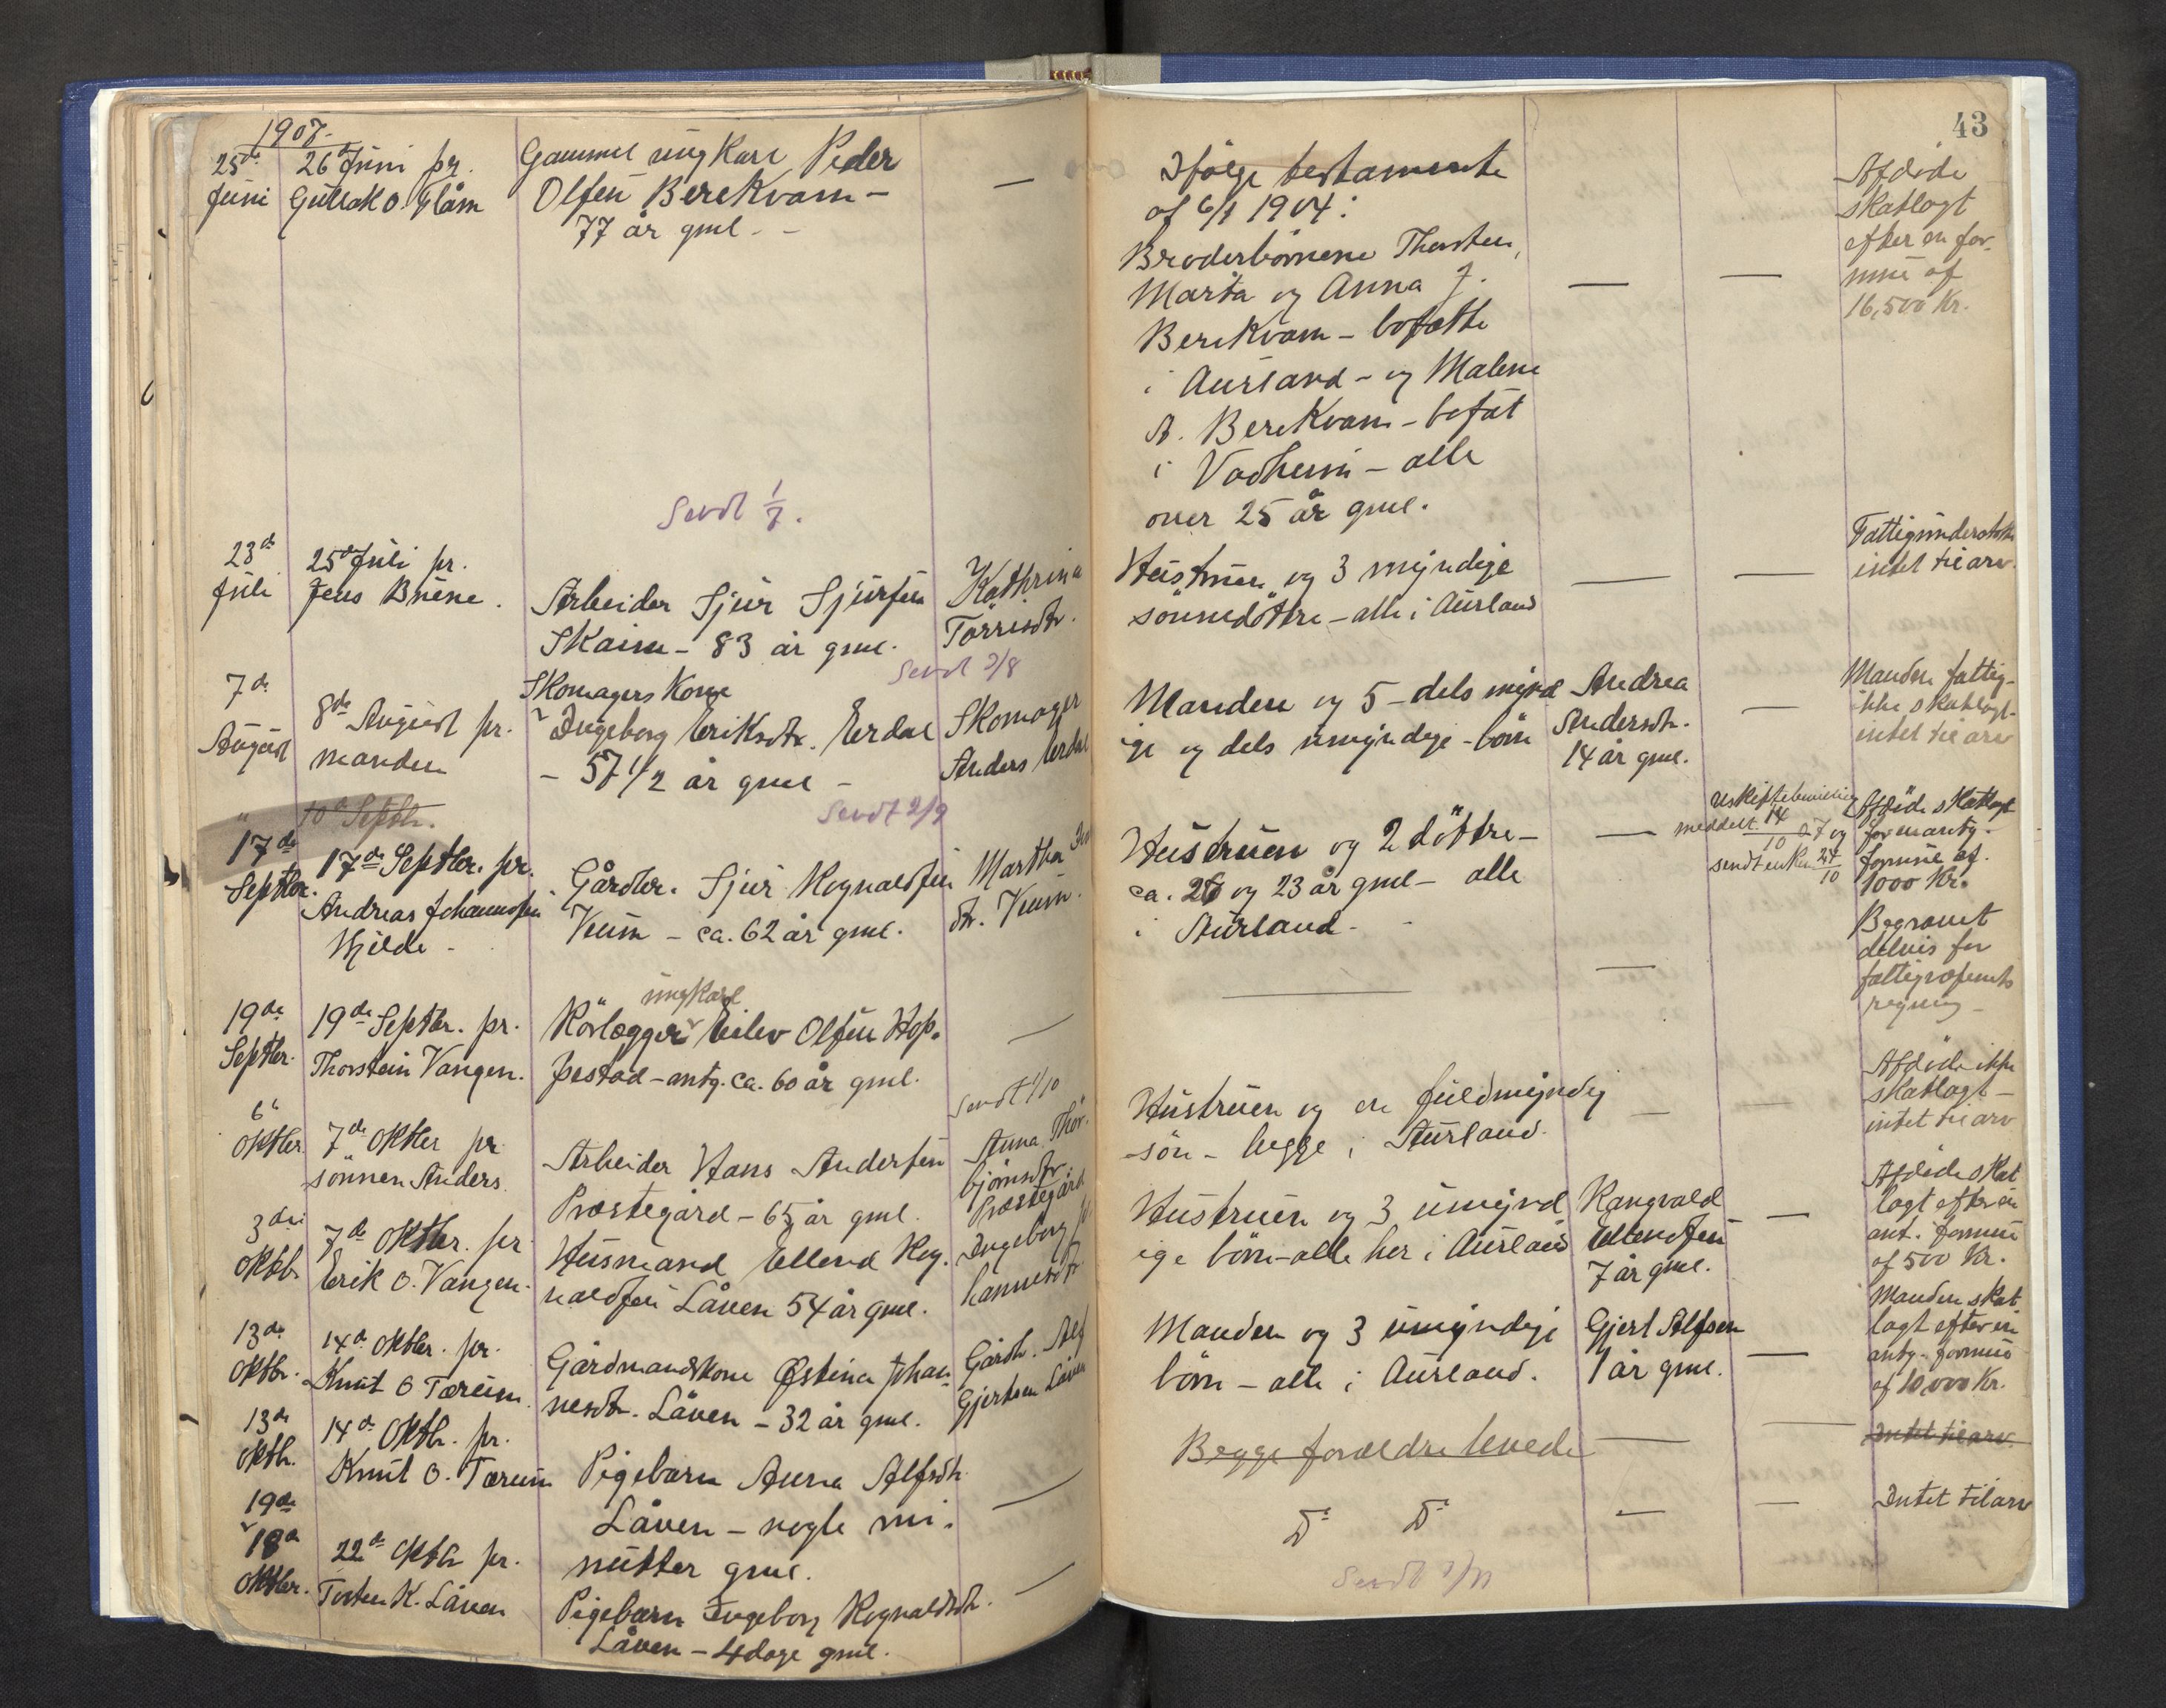 43
1907.
25de
Juni
26de Juni pr.
Gullak O. Glåm
Gammel ungkarl Peder
Olsen Berekvam -
77 år gml. -
—
Ifølge testamente
af 6/1 1904:
Broderbørnene Thorsten,
Marta og Anna J.
Berekvam - bosatte
i Aurland - og Malene
A. Berekvam - bosat
i Vadheim - alle
over 25 år gml.
—
—
Afdøde
skatlagt
efter en for-
mue af
16,500 Kr.
Sendt 1/7.
23de
Juli
25de Juli pr.
Jens Brune.
Arbeider Sjur Sjursen
Skaim - 83 år gml.
Kathrina
Torrisdtr.
Hustruen og 3 myndige
sønnedøttre - alle i Aurland
—
—
Fattigunderstøttet
intet til arv.
Sendt 2/8
7de
August
8de August pr.
manden
Skomagers Kone
Ingeborg Eriksdtr. Erdal
- 57 1/2 år gml -
Skomager
Anders Erdal
Manden og 5 - dels mynd
ige og dels umyndige - børn
Andrea
Andersdtr.
14 år gml.
—
Manden fattig-
ikke skatlagt-
intet til arv
Sendt 2/9
10de Septbr.
17de
Septbr.
17de Septbr. pr.
Andreas Johannesen
Hjelde -
Gårdbr. Sjur Rognaldsen
Veum - ca. 62 år gml.
Martha
dtr. Veum.
Hustruen og 2 døttre -
ca. 26 og 23 år gml - alle
i Aurland -
—
meddelt 14/10 07 og
sendt enken 24/10
Afdøde skatlagt
for en antg.
formue af
1000 Kr.
19de
Septbr.
19de Septbr. pr.
Thorstein Vangen.
ungkarl
Rørlægger Eilev Olsen Hop-
pestad - antg. ca. 60 år gml.
—
—
—
Begravet
delvis for
fattigvæsenets
regning -
Sendt 1/10
6te
Oktbr.
7de Oktbr pr.
sønnen Anders.
Arbeider Hans Andersen
Præstegård - 65 år gml.
Anna Thor-
bjørnsdtr
Præstegård
Hustruen og en fuldmyndig
søn - begge i Aurland.
—
—
Afdøde ikke
skatlagt -
intet til arv
3die
Oktb.
7de Oktbr. pr.
Erik O. Vangen.
Husmand Ellend Rog-
naldsen Låven 54 år gml.
Ingeborg Jo
hannesdtr
Hustruen og 3 umynd
ige børn - alle her i Aurland
Rangvald
Ellendsen
7 år gml.
—
Afdøde skat
lagt efter en
ant. formue
af 500 Kr.
13de
Oktbr.
14de Oktbr. pr.
Knut O Tærum.
Gårdmandskone Østina Johan-
nesdtr. Låven - 32 år gml.
Gårdb. Alf
Gjertsen Låven
Manden og 3 umyndige
børn - alle i Aurland.
Gjert Alfsen
1 år gml.
—
Manden skat
lagt efter en
antg. formue
af 10,000 Kr.
13de
Oktb.
14de Oktb. pr.
Knut O. Tærum
Pigebarn Anna Alfsdtr.
Låven - nogle mi-
nutter gml.
—
Begge forældre levede
—
—
Intet til arv.
19de
18de
Oktbr.
22de Oktb pr.
Torsten K. Låven
Pigebarn Ingeborg Rognaldsdtr.
Låven - 4 dage gml.
—
Do Do
—
—
Intet til arv
Sendt 1/11